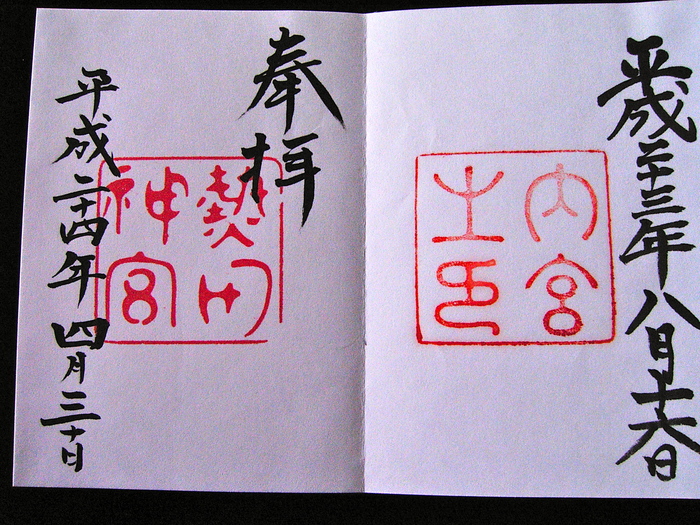 平成二十三年八月十六日
内宮
之印
奉拝
熱田
神宮
平成二十四年四月三十日